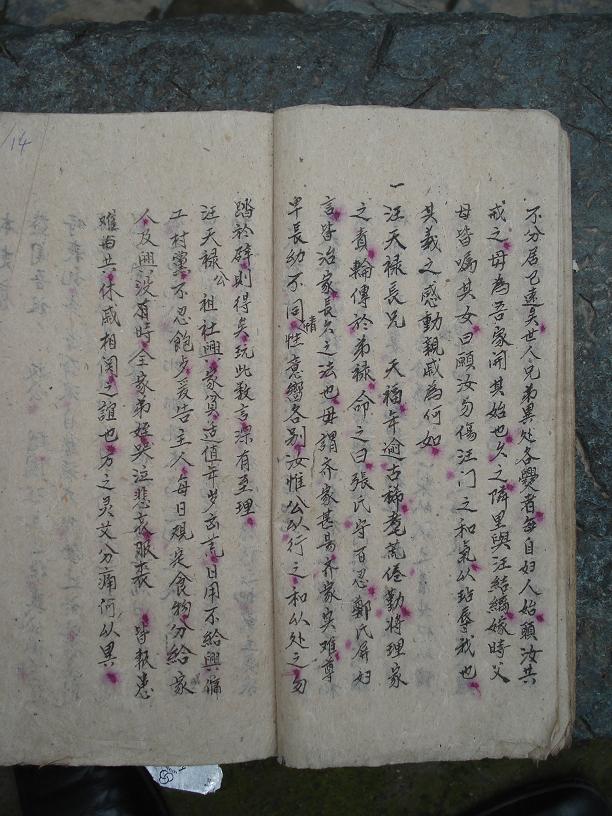 不分居已遠矣世人兄弟異处各爨者每自妇人始願汝共
戒之毋為吾家開其始也久之隣里與汪結縭嫁時父
母皆嘱其女曰願汝勿傷汪门之和氣以玷辱我也
其義之感動親戚為何如
一汪天禄長兄 天福年逾古稀耄荒倦勤將理家
之責輪傳於弟禄命之曰張氏守百忍鄭氏屏妇
言皆治家長久之法也毋謂齐家甚易齐家实难尊
卑長幼不同情性意嚮各别汝惟公以行之和以处之勿
踏於辟則得矣玩此数言深有至理
汪天禄公祖社興家貧适值年岁凶荒日用不给興傭
工村黨不忍飽食爰告主人每日观定食物分给家
人及興没有時全家弟姪哭泣悲哀服喪 皆報患
难与共休戚相関之誼也方之灵艾分痛何以異
14